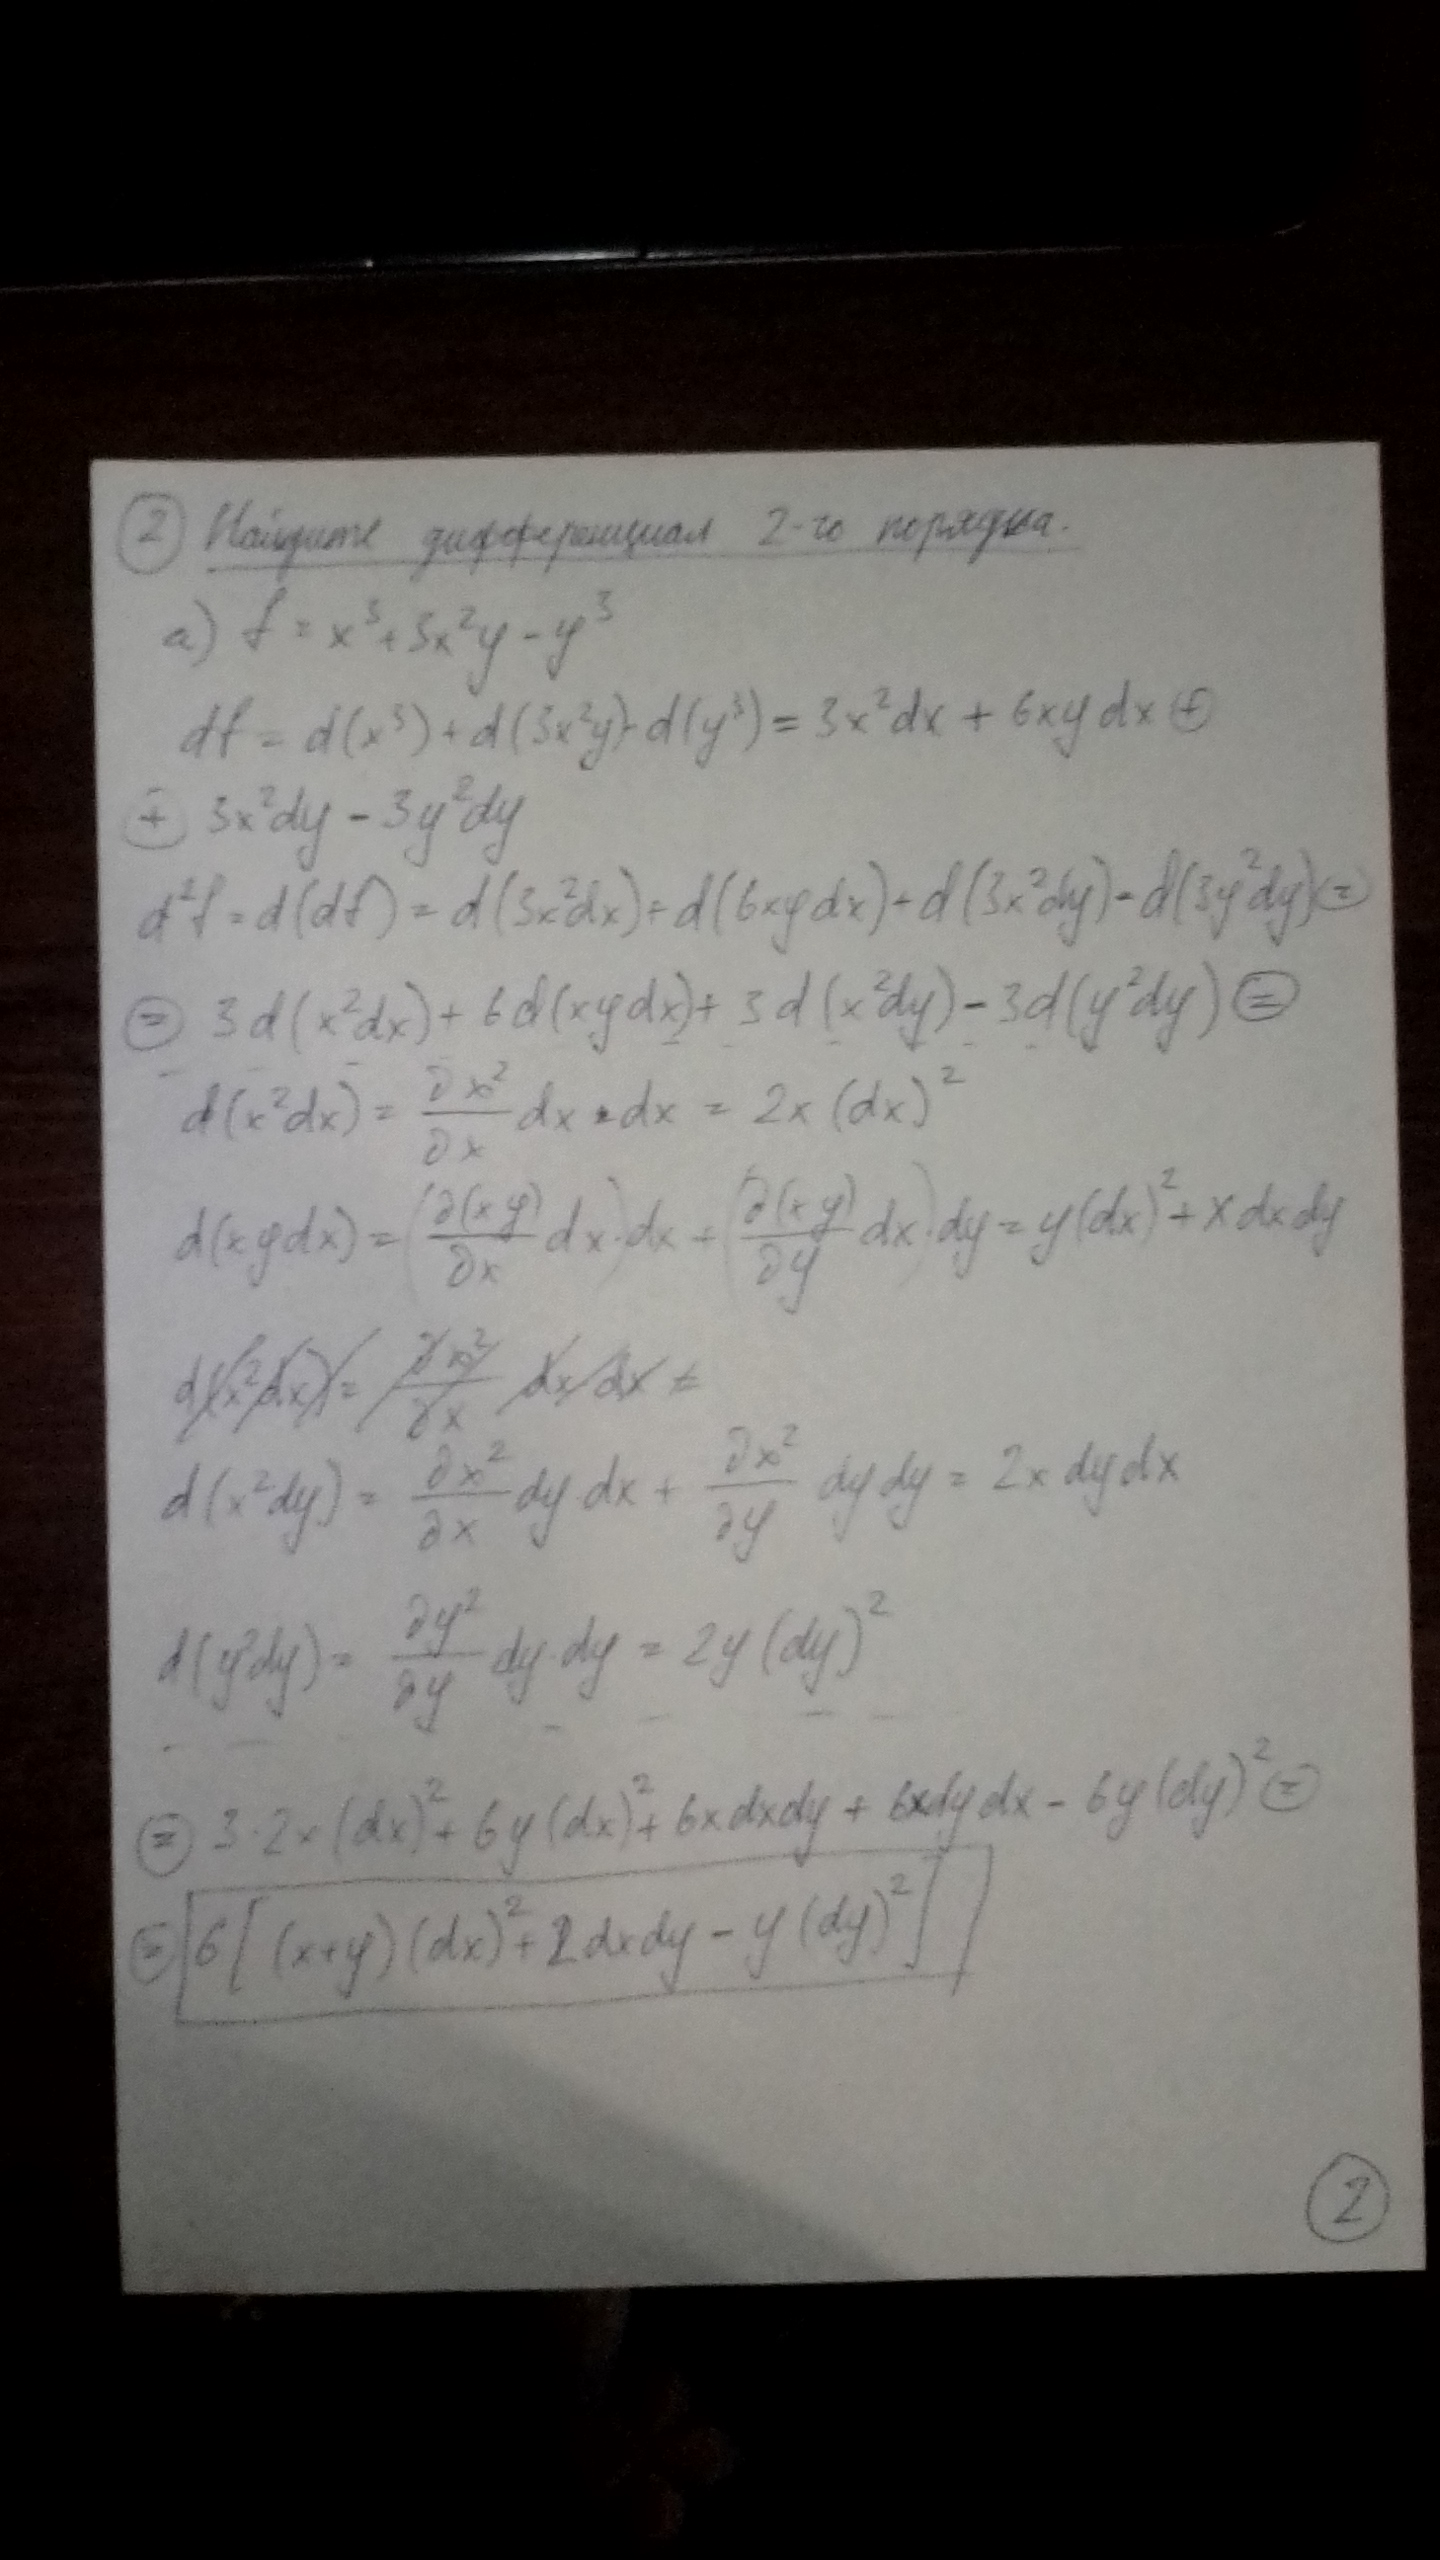 ② Найдите дифференциал 2-го порядка.
a) f = x³ + 3x²y - y³
df = d(x³) + d(3x²y) - d(y³) = 3x²dx + 6xy dx ⊕
⊕ 3x²dy - 3y²dy
d²f = d(df) = d(3x²dx) + d(6xydx) + d(3x²dy) - d(3y²dy) ⊜
⊜ 3d(x²dx) + 6d(xydx) + 3d(x²dy) - 3d(y²dy) ⊜
d(x²dx) = ∂x²/∂x dx · dx = 2x(dx)²
d(xydx) = (∂(xy)/∂x dx)·dx + (∂(xy)/∂y dx)·dy = y(dx)² + x dxdy
d(x²dx) = ∂x²/∂x dx dx =
d(x²dy) = ∂x²/∂x dy·dx + ∂x²/∂y dy dy = 2x dy dx
d(y²dy) = ∂y²/∂y dy·dy = 2y(dy)²
⊜ 3·2x(dx)² + 6y(dx)² + 6x dxdy + 6xdydx - 6y(dy)² ⊜
⊜ 6[(x+y)(dx)² + 2dxdy - y(dy)²]
②